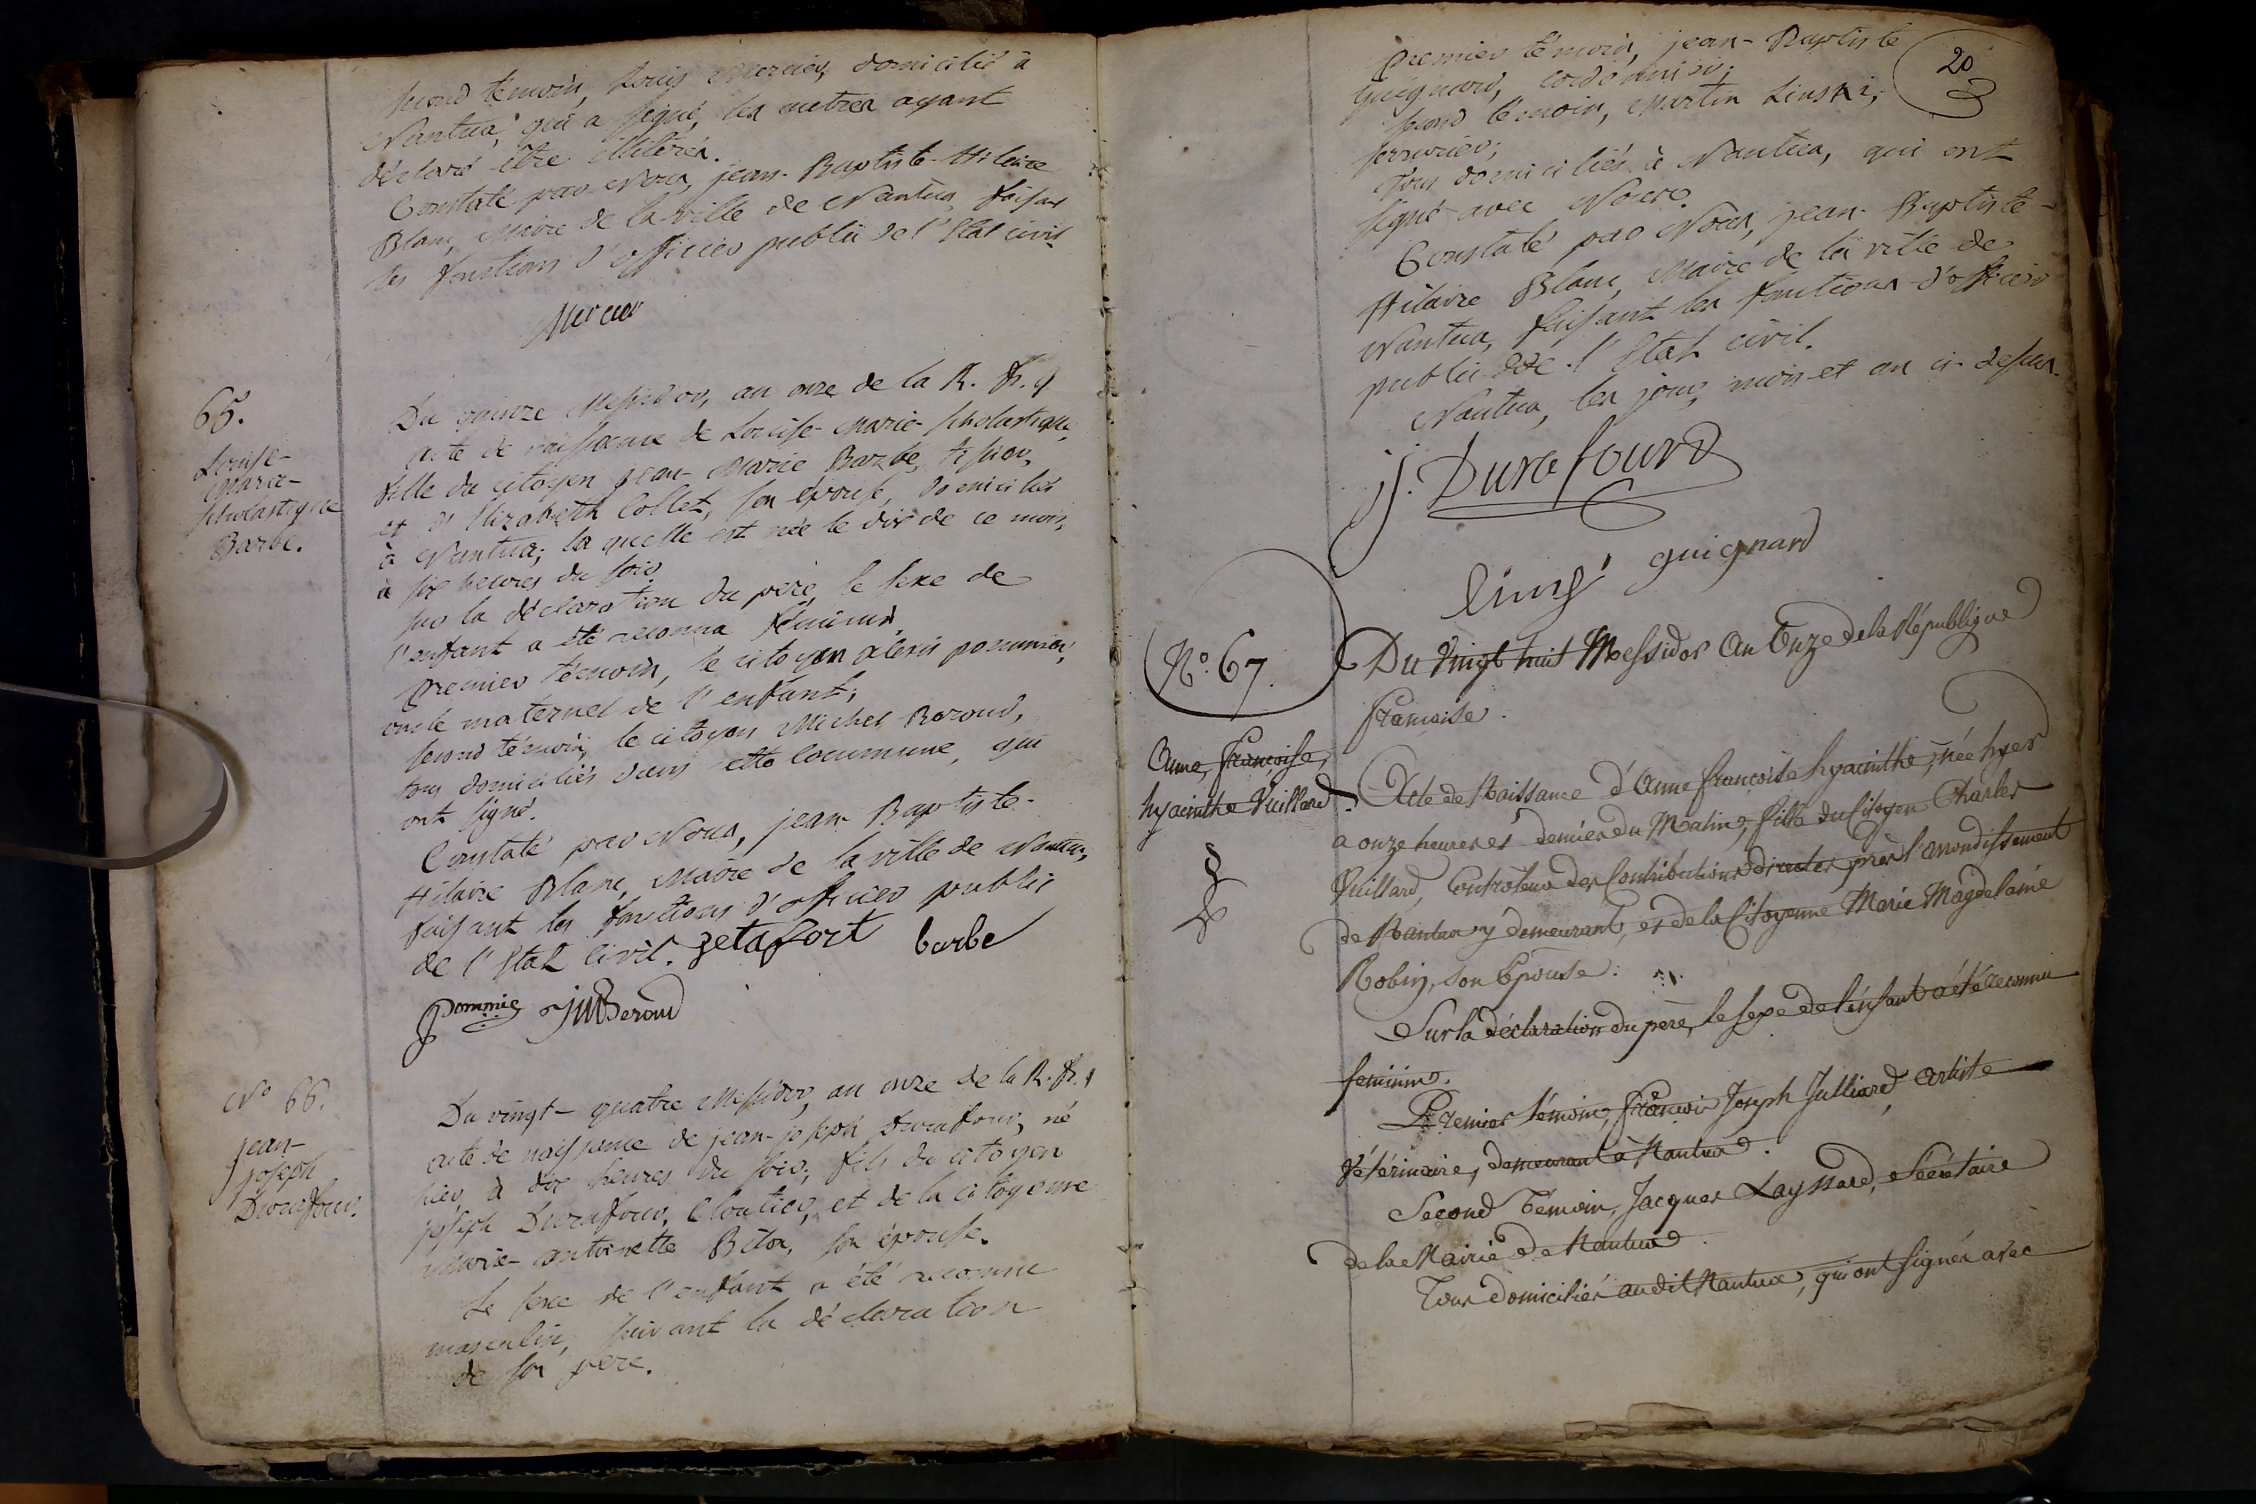 second témoin, Louis Mercier, domicilié à
Nantua, qui a signé, les autres ayant
déclaré être illitérés.
Constaté par Nous, jean-Baptiste-Hilaire
Blanc, Maire de la ville de Nantua, faisant
les fonctions d'officier public de l'Etat civil
Mercier
65.
Louise-
Marie-
scholastique
Barbe.
Du quinze Messidor, an onze de la R. fr.
acte de naissance de Louise-Marie-scholastique,
fille du citoyen jean-Marie Barbe,
et d'Elizabeth Collet, son épouse, domiciliés
à Nantua; la quelle est née le dix de ce mois,
à six heures du soir.
sur la déclaration du père, le sexe de
l'enfant a été reconnu féminin.
Premier témoin, le citoyen alexis pommier,
oncle maternel de l'enfant;
second témoin, le citoyen Michel Beroud,
tous domiciliés dans cette Commune, qui
ont signé.
Constaté par Nous, jean Baptiste-
Hilaire Blanc, Maire de la ville de Nantua,
faisant les fonctions d'officier public
de l'Etat Civil. barbe
Pommie JMBeroud
N° 66.
jean-
joseph
Durafour.
Du vingt-quatre Messidor, an onze de la R. fr.
acte de naissance de jean-joseph Durafour, né
hier, à dix heures du soir, fils du citoyen
joseph Durafour, Cloutier, et de la citoyenne
Marie-antoinette son épouse.
Le sexe de l'enfant a été reconnu
masculin, suivant la déclaration
de son père.
20
Premier témoin, jean-Baptiste
Guignard, cordonnier;
second témoin, Martin Linski,
serrurier;
Tous domiciliés à Nantua, qui ont
signé avec Nous.
Constaté par Nous, jean-Baptiste-
Hilaire Blanc, Maire de la ville de
Nantua, faisant les fonctions d'officier
public de l'Etat civil.
Nantua, les jour, mois et an ci-dessus.
jj. Durafourd
guignard
N° 67.
Anne, françoise,
hyacinthe Vuillard
Du Vingt huit Messidor an Onze de la République
francaise.
Acte de Naissance d'Anne francoise hyacinthe, née hyer
a onze heures et demies du Matin, fille du Citoyen Charles
Vuillard, Controleur des Contributions directes près l'arrondissement
de Nantua y demeurant, et de la Citoyenne Marie Magdelaine
Robin, son Epouse.
Sur la déclaration du père, le sexe de l'enfant a été reconnu
feminin.
Premier témoin, francois Joseph Julliard, artiste
Vétérinaire, demeurant à Nantua.
Second Témoin, Jacques Layssard, Secrétaire
de la Mairie de Nantua.
Tous domiciliés audit Nantua, qui ont signés avec